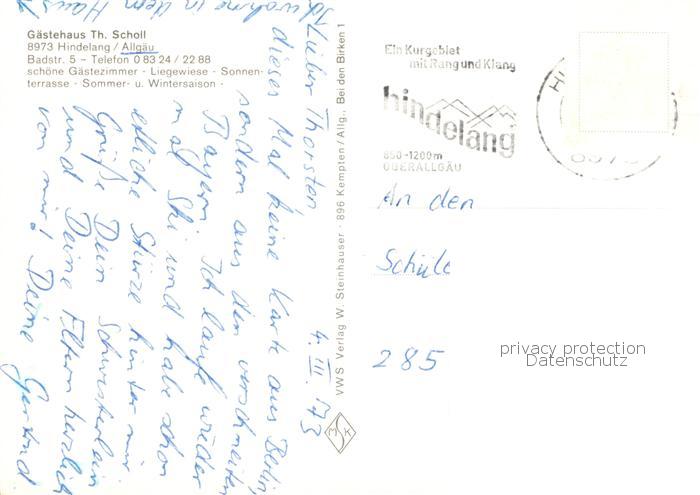 Ich wohne in dem Haus
Gästehaus Th. Scholl
8973 Hindelang / Allgäu
Badstr. 5 – Telefon 0 83 24 / 22 88
schöne Gästezimmer · Liegewiese · Sonnen-
terrasse · Sommer- u. Wintersaison ·
4. III. 73
Lieber Thorsten,
dieses Mal keine Karte aus Berlin,
sondern aus dem verschneiten
Bayern. Ich laufe wieder
mal Ski und habe schon
etliche Stürze hinter mir
Grüße Dein Schwesterlein
und Deine Eltern herzlich
von mir! Deine
VWS Verlag W. Steinhauser · 896 Kempten / Allg., Bei den Birken 1
MSK
Ein Kurgebiet
mit Rang und Klang
hindelang
850-1200m
OBERALLGÄU
An den
285
privacy protection
Datenschutz